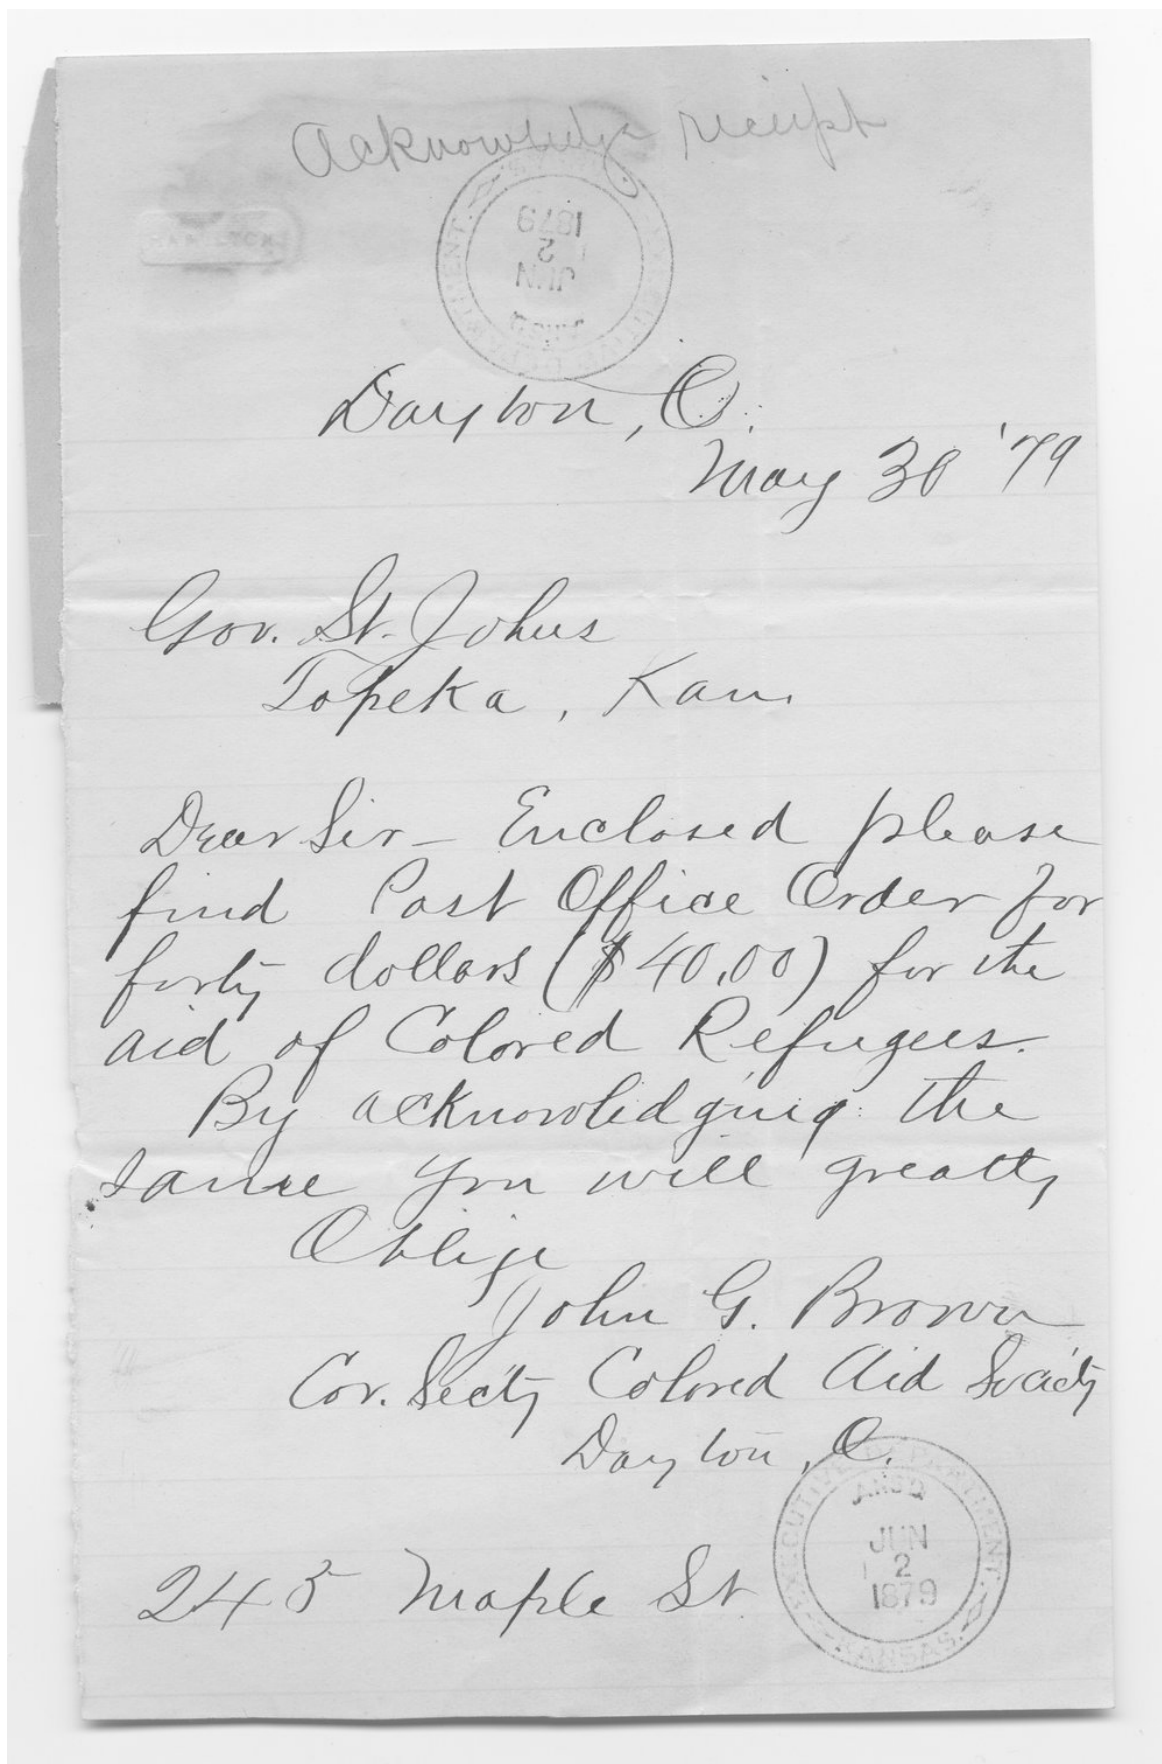 Acknowledge receipt
1879
2
JUN
ANSD
Dayton, O.
May 30 '79
Gov. St. Johns
Topeka, Kan.
Dear Sir - Enclosed please
find Post Office Order for
forty dollars ($40.00) for the
aid of Colored Refugees.
By acknowledging the
same you will greatly
Oblige
John G. Brown
Cor. Secty Colored Aid Society
Dayton, O.
EXECUTIVE DEPARTMENT.
ANSD
JUN
2
1879
KANSAS.
245 Maple St